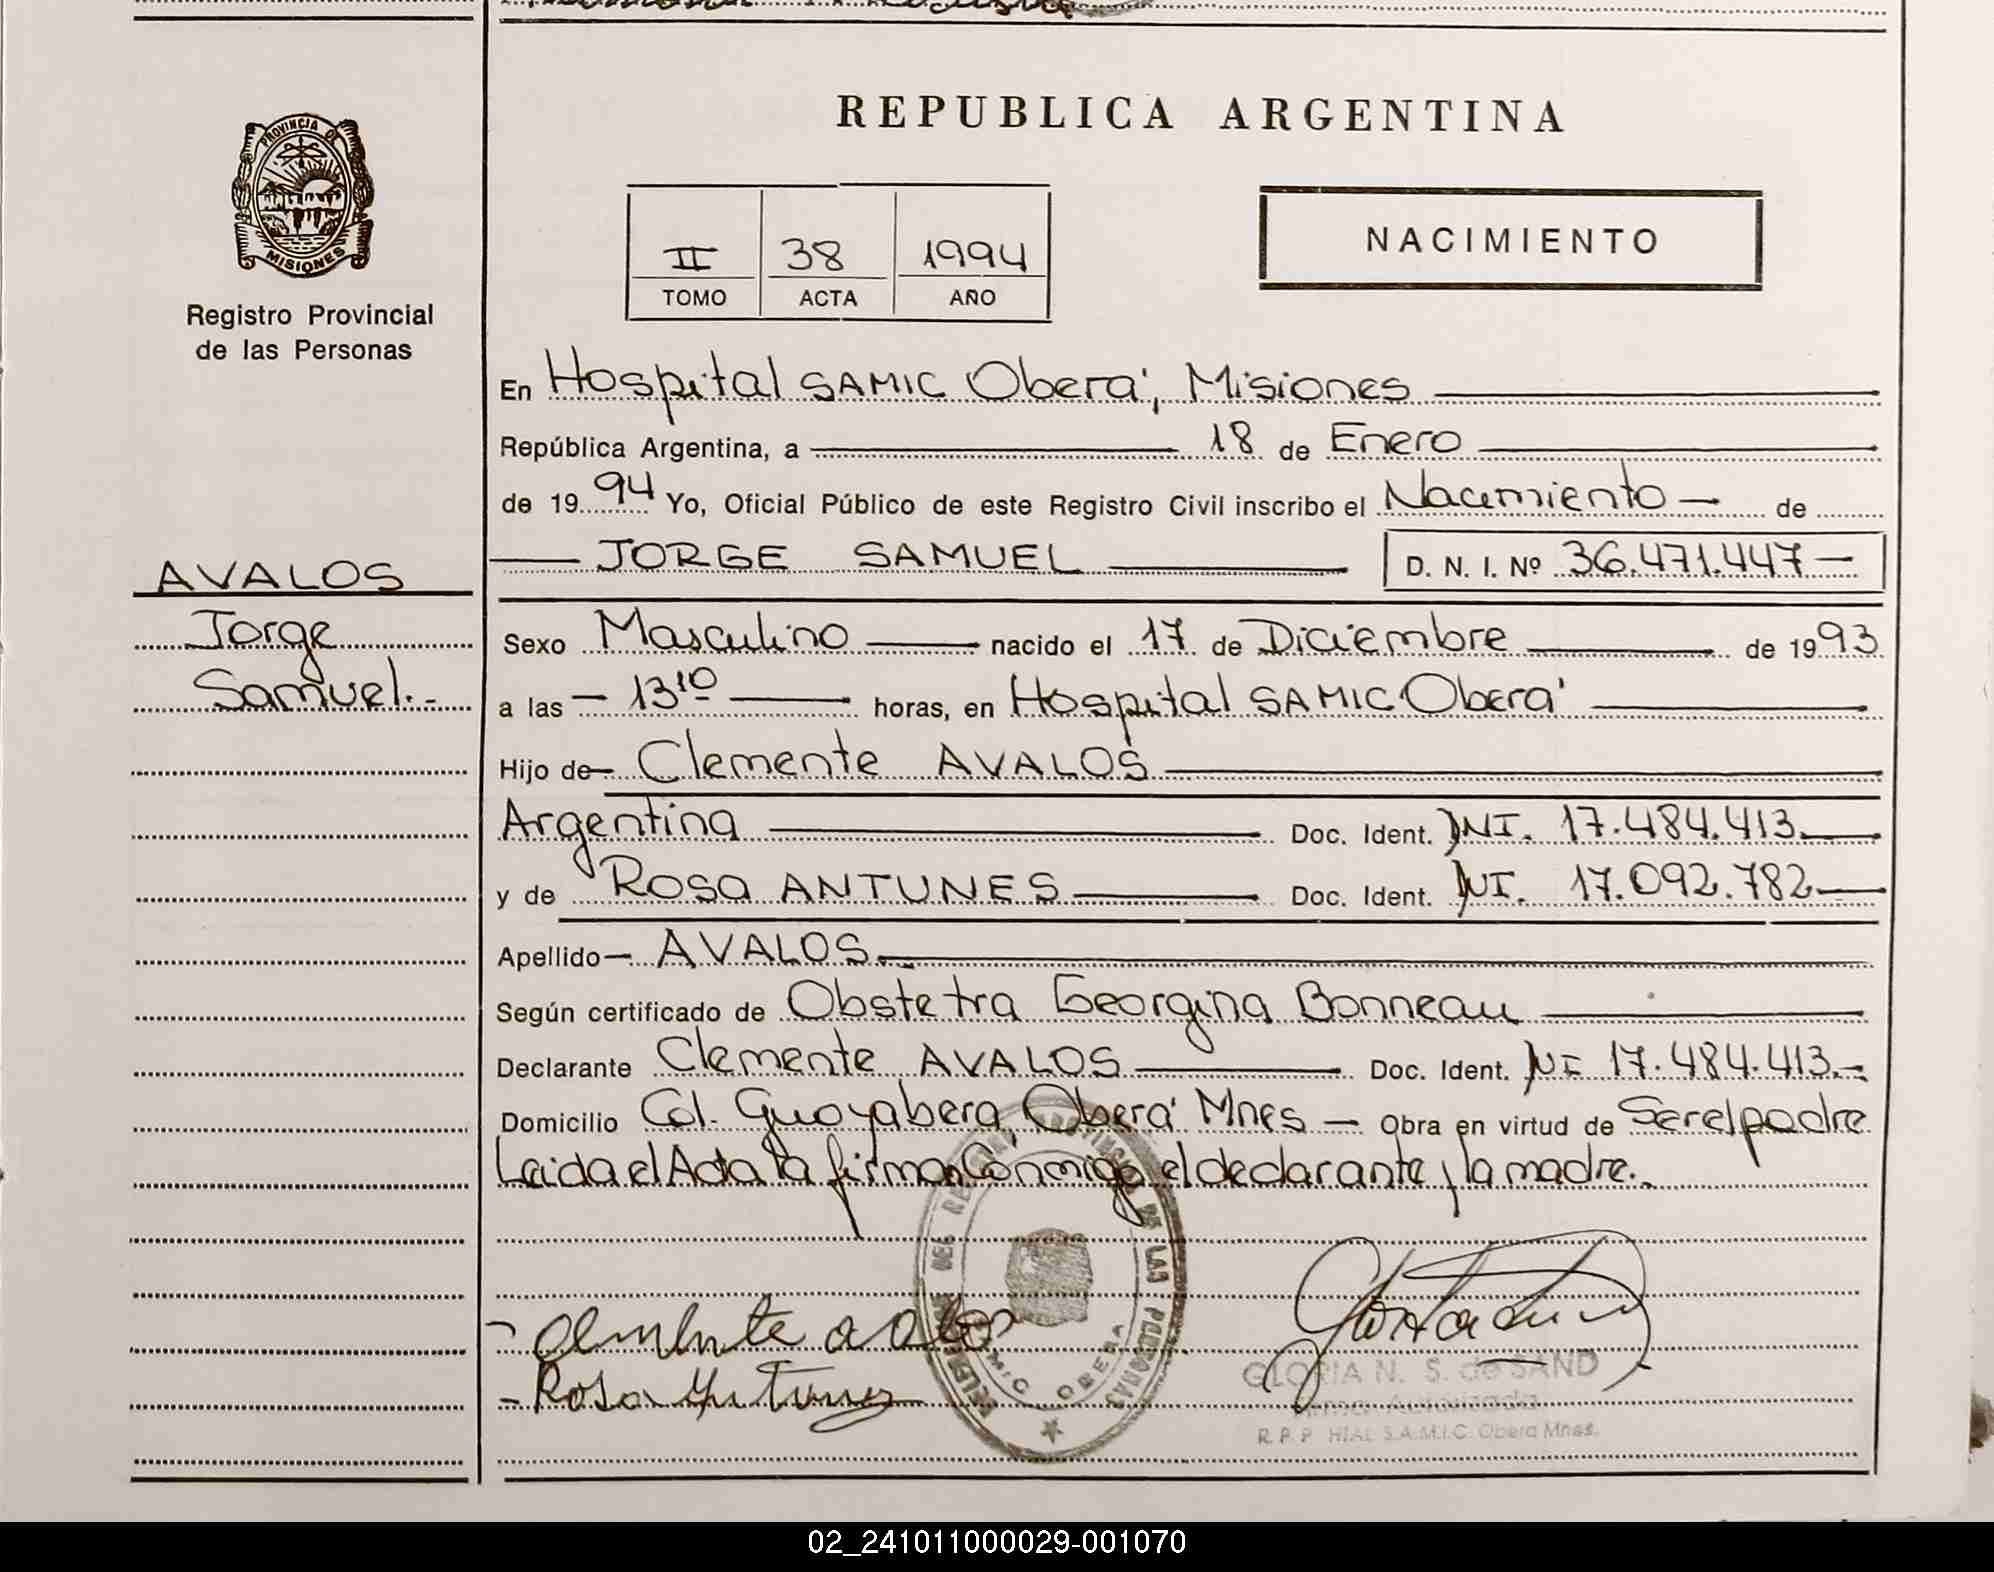 REPUBLICA ARGENTINA
PROVINCIA DE
MISIONES
Registro Provincial
de las Personas
II 38 1994
TOMO ACTA AÑO
NACIMIENTO
En Hospital SAMIC Oberá, Misiones
República Argentina, a 18 de Enero
de 1994 Yo, Oficial Público de este Registro Civil inscribo el Nacimiento de
JORGE SAMUEL D. N. I. Nº 36.471.447
AVALOS
Jorge
Samuel.-
Sexo Masculino nacido el 17 de Diciembre de 1993
a las 13¹⁰ horas, en Hospital SAMIC Oberá
Hijo de Clemente AVALOS
Argentina Doc. Ident. DNI. 17.484.413.
y de Rosa ANTUNES Doc. Ident. DNI. 17.092.782
Apellido AVALOS.
Según certificado de Obstetra Georgina Bonneau
Declarante Clemente AVALOS Doc. Ident. DNI 17.484.413.-
Domicilio Col. Guayabera, Oberá Mnes Obra en virtud de Ser el padre
Leida el Acta la firman Conmigo el declarante y la madre.
Rosa Antunes
GLORIA N. S. de SAND
Firma Autorizada
R. P. P. HIAL S.A.M.I.C. Oberá Mnes.
02_241011000029-001070